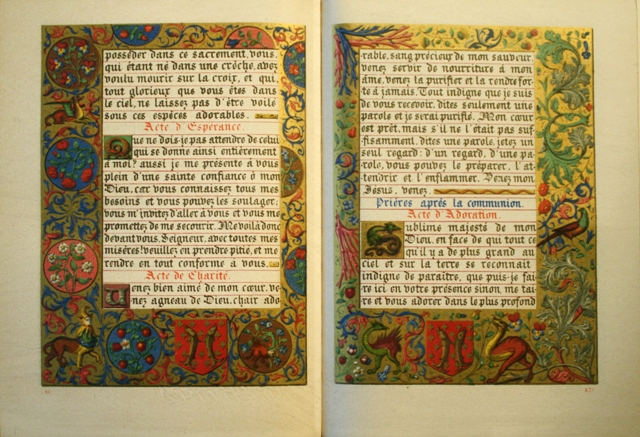 posséder dans ce sacrement, vous,
qui étant né dans une crèche, avez
voulu mourir sur la croix, et qui,
tout glorieux que vous êtes dans
le ciel, ne laissez pas d'être voilé
sous ces espèces adorables.
Acte d'Espérance.
Que ne dois-je pas attendre de celui
qui se donne ainsi entièrement
à moi? aussi je me présente à vous
plein d'une sainte confiance ô mon
Dieu, car vous connaissez tous mes
besoins et vous pouvez les soulager;
vous m'invitez d'aller à vous et vous me
promettez de me secourir. Me voilà donc
devant vous, Seigneur, avec toutes mes
misères! veuillez en prendre pitié, et me
rendre en tout conforme à vous.
Acte de Charité.
Venez bien aimé de mon cœur, ve-
nez agneau de Dieu, chair ado
rable, sang précieux de mon sauveur.
venez servir de nourriture à mon
âme, venez la purifier et la rendre for-
te à jamais. Tout indigne que je suis
de vous recevoir, dites seulement une
parole et je serai purifié. Mon cœur
est prêt, mais s'il ne l'était pas suf-
fisamment, dites une parole, jetez un
seul regard: d'un regard, d'une pa-
role, vous pouvez le préparer, l'at-
tendrir et l'enflammer. Venez mon
Jésus, venez.
Prières après la communion.
Acte d'Adoration.
Sublime majesté de mon
Dieu, en face de qui tout ce
qu'il y a de plus grand au
ciel et sur la terre se reconnait
indigne de paraître, que puis-je fai-
re ici en votre présence sinon me tai-
re et vous adorer dans le plus profond